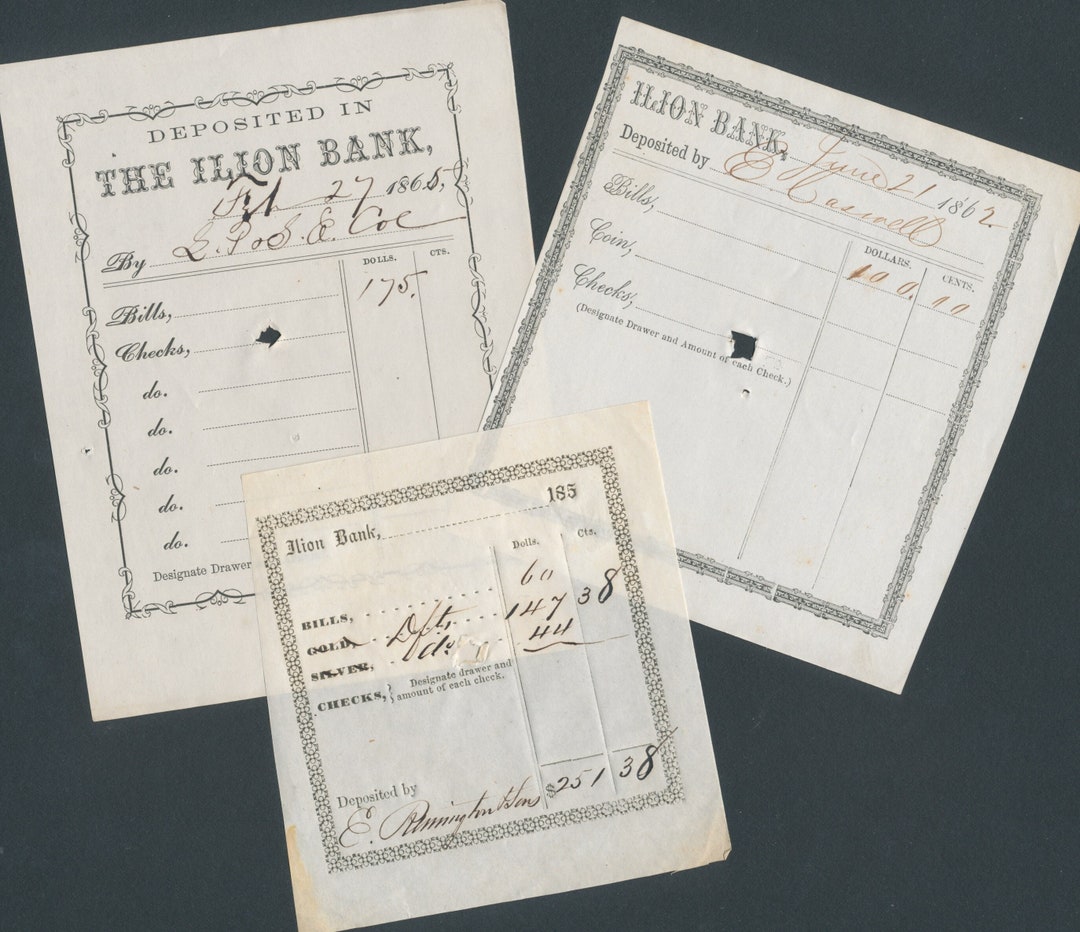 DEPOSITED IN
THE ILION BANK,
27 1865,
By S. E. Coe
DOLLS. CTS.
Bills, 175.
Checks,
do.
do.
do.
do.
do.
Designate Drawer
ILION BANK,
June 21 1862
Deposited by
DOLLARS. CENTS.
Bills,
Coin,
Checks,
(Designate Drawer and Amount of each Check.)
Ilion Bank, 185
Dolls. Cts.
BILLS, 60
GOLD, Dfts 147 38
SILVER, do 44
CHECKS, { Designate drawer and
amount of each check.
$251 38
Deposited by
E. Remington & Sons